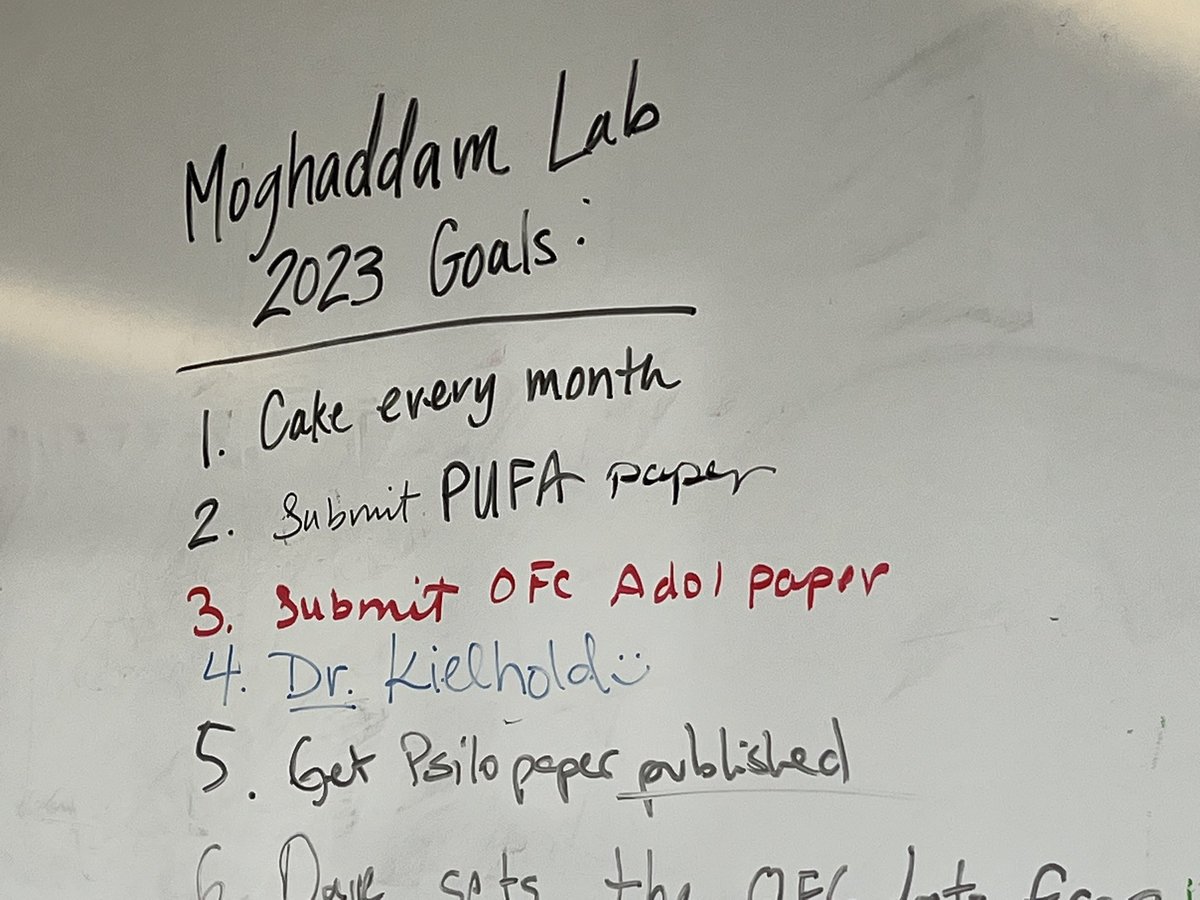 Moghaddam Lab
2023 Goals:
1. Cake every month
2. Submit PUFA paper
3. Submit OFC Adol paper
4. Dr. Kielhold :)
5. Get Psilo paper published
6. Dave gets the OFC